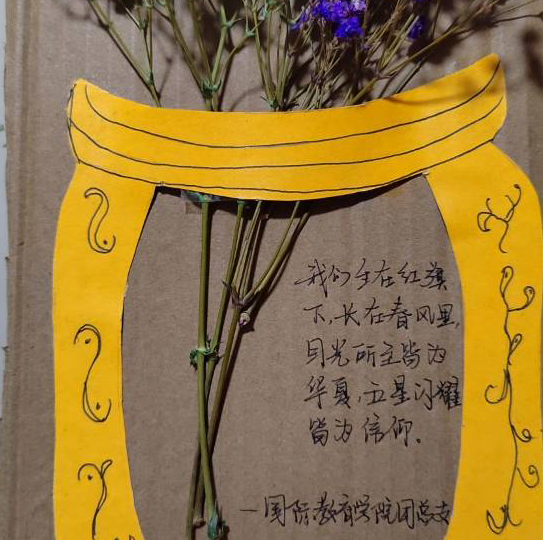 我们生在红旗
下,长在春风里,
目光所至皆为
华夏,五星闪耀
皆为信仰。
—国际教育学院团总支